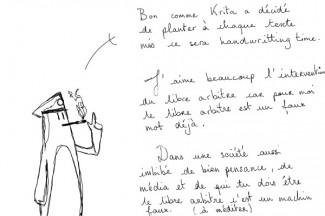 Bon comme Krita a décidé
de planter à chaque texte
mis ce sera handwritting time.
J'aime beaucoup l'intervention
du libre arbitre car pour moi
le libre arbitre est un faux
mot déjà.
Dans une société aussi
imbibée de bien pensance, de
média et de qui tu dois être
le libre arbitre c'est un machin
faux. (à méditer)